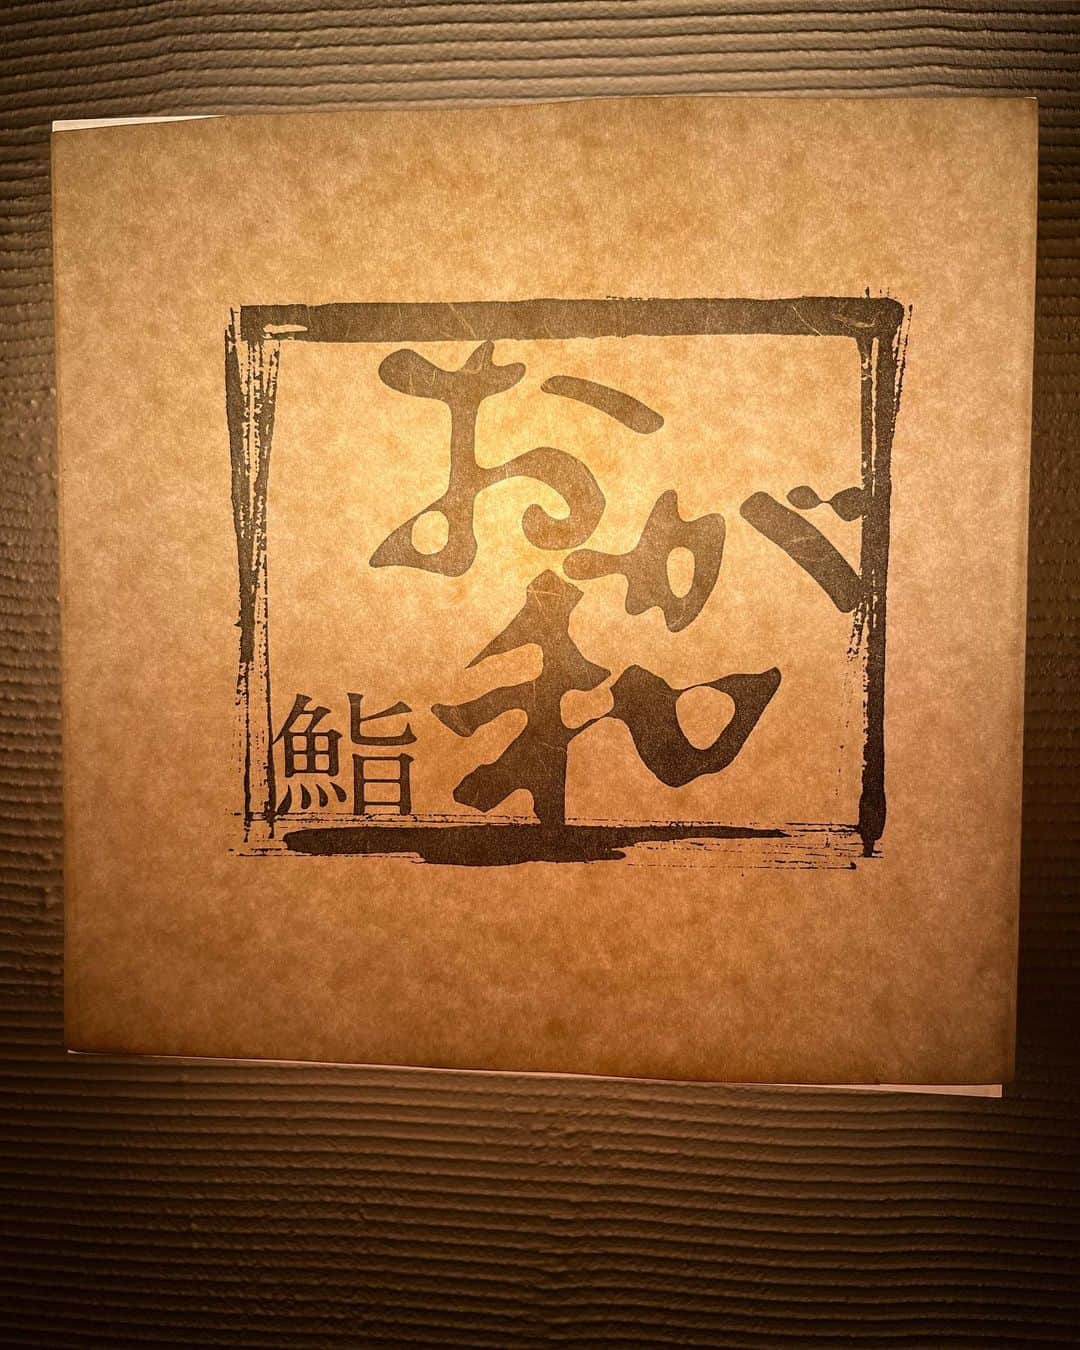 鮨
おが和